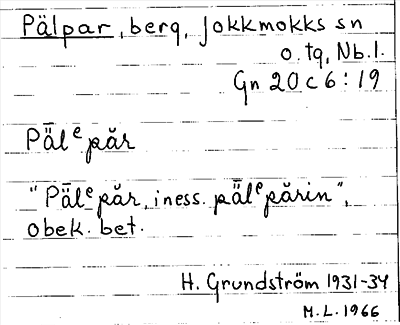 Pälpar, berg, Jokkmokks sn
o. tg, Nb. l.
Gn 20 c 6:19
Pǟlᵉpăr
"Pǟlᵉpăr, iness. pǟlᵉpărin",
obek. bet.
H. Grundström 1931-34
M.L. 1966